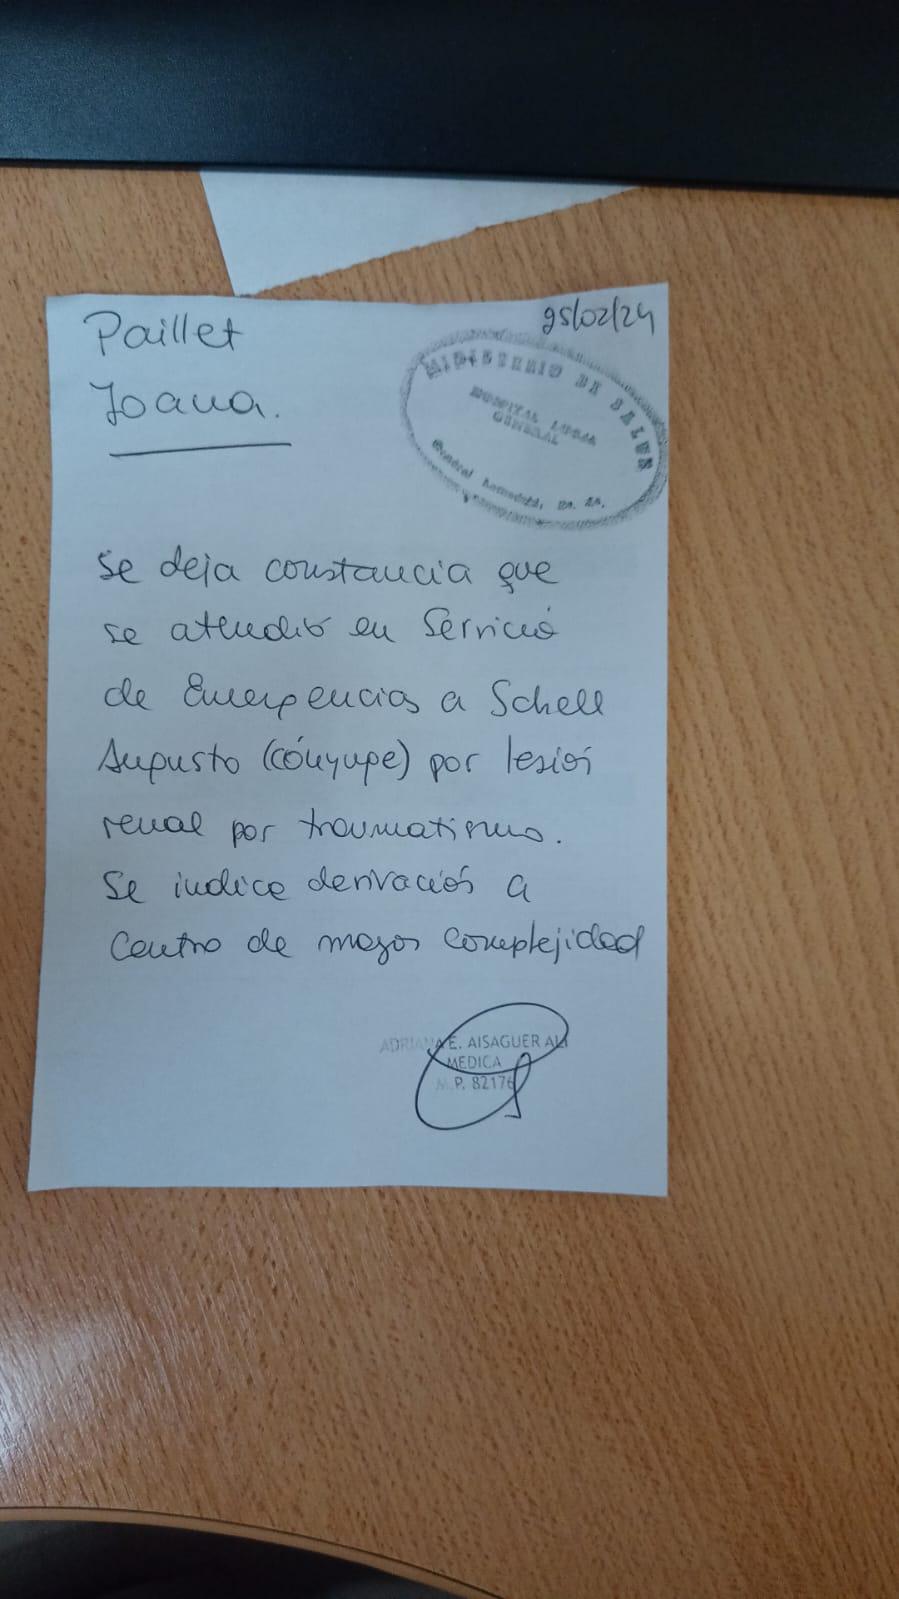 Paillet
Joana.
05/02/24
MINISTERIO DE SALUD
HOSPITAL
GENERAL
General Lamadrid, Bs. As.
Se deja constancia que
se atendió en Servicio
de Emergencias a Schell
Augusto (cónyuge) por lesión
renal por traumatismo.
Se indica derivación a
Centro de mayor complejidad
ADRIANA E. AISAGUER
MEDICA
M.P. 82176